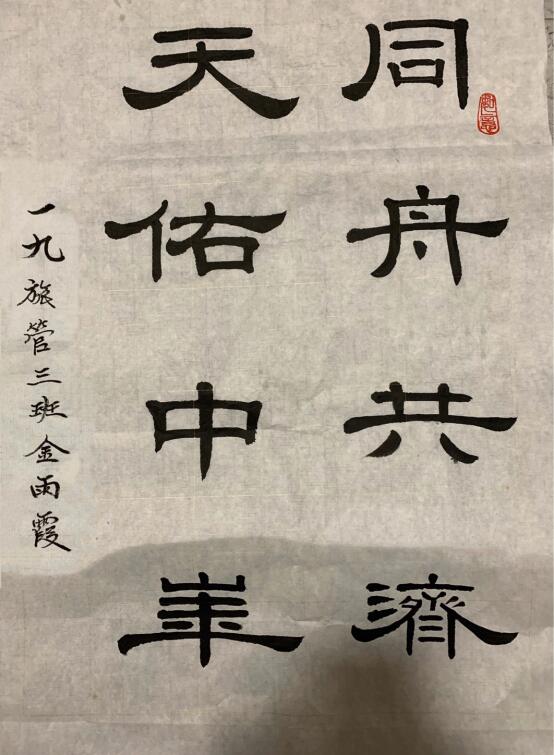 同舟共濟
天佑中華
一九旅管三班金雨霞